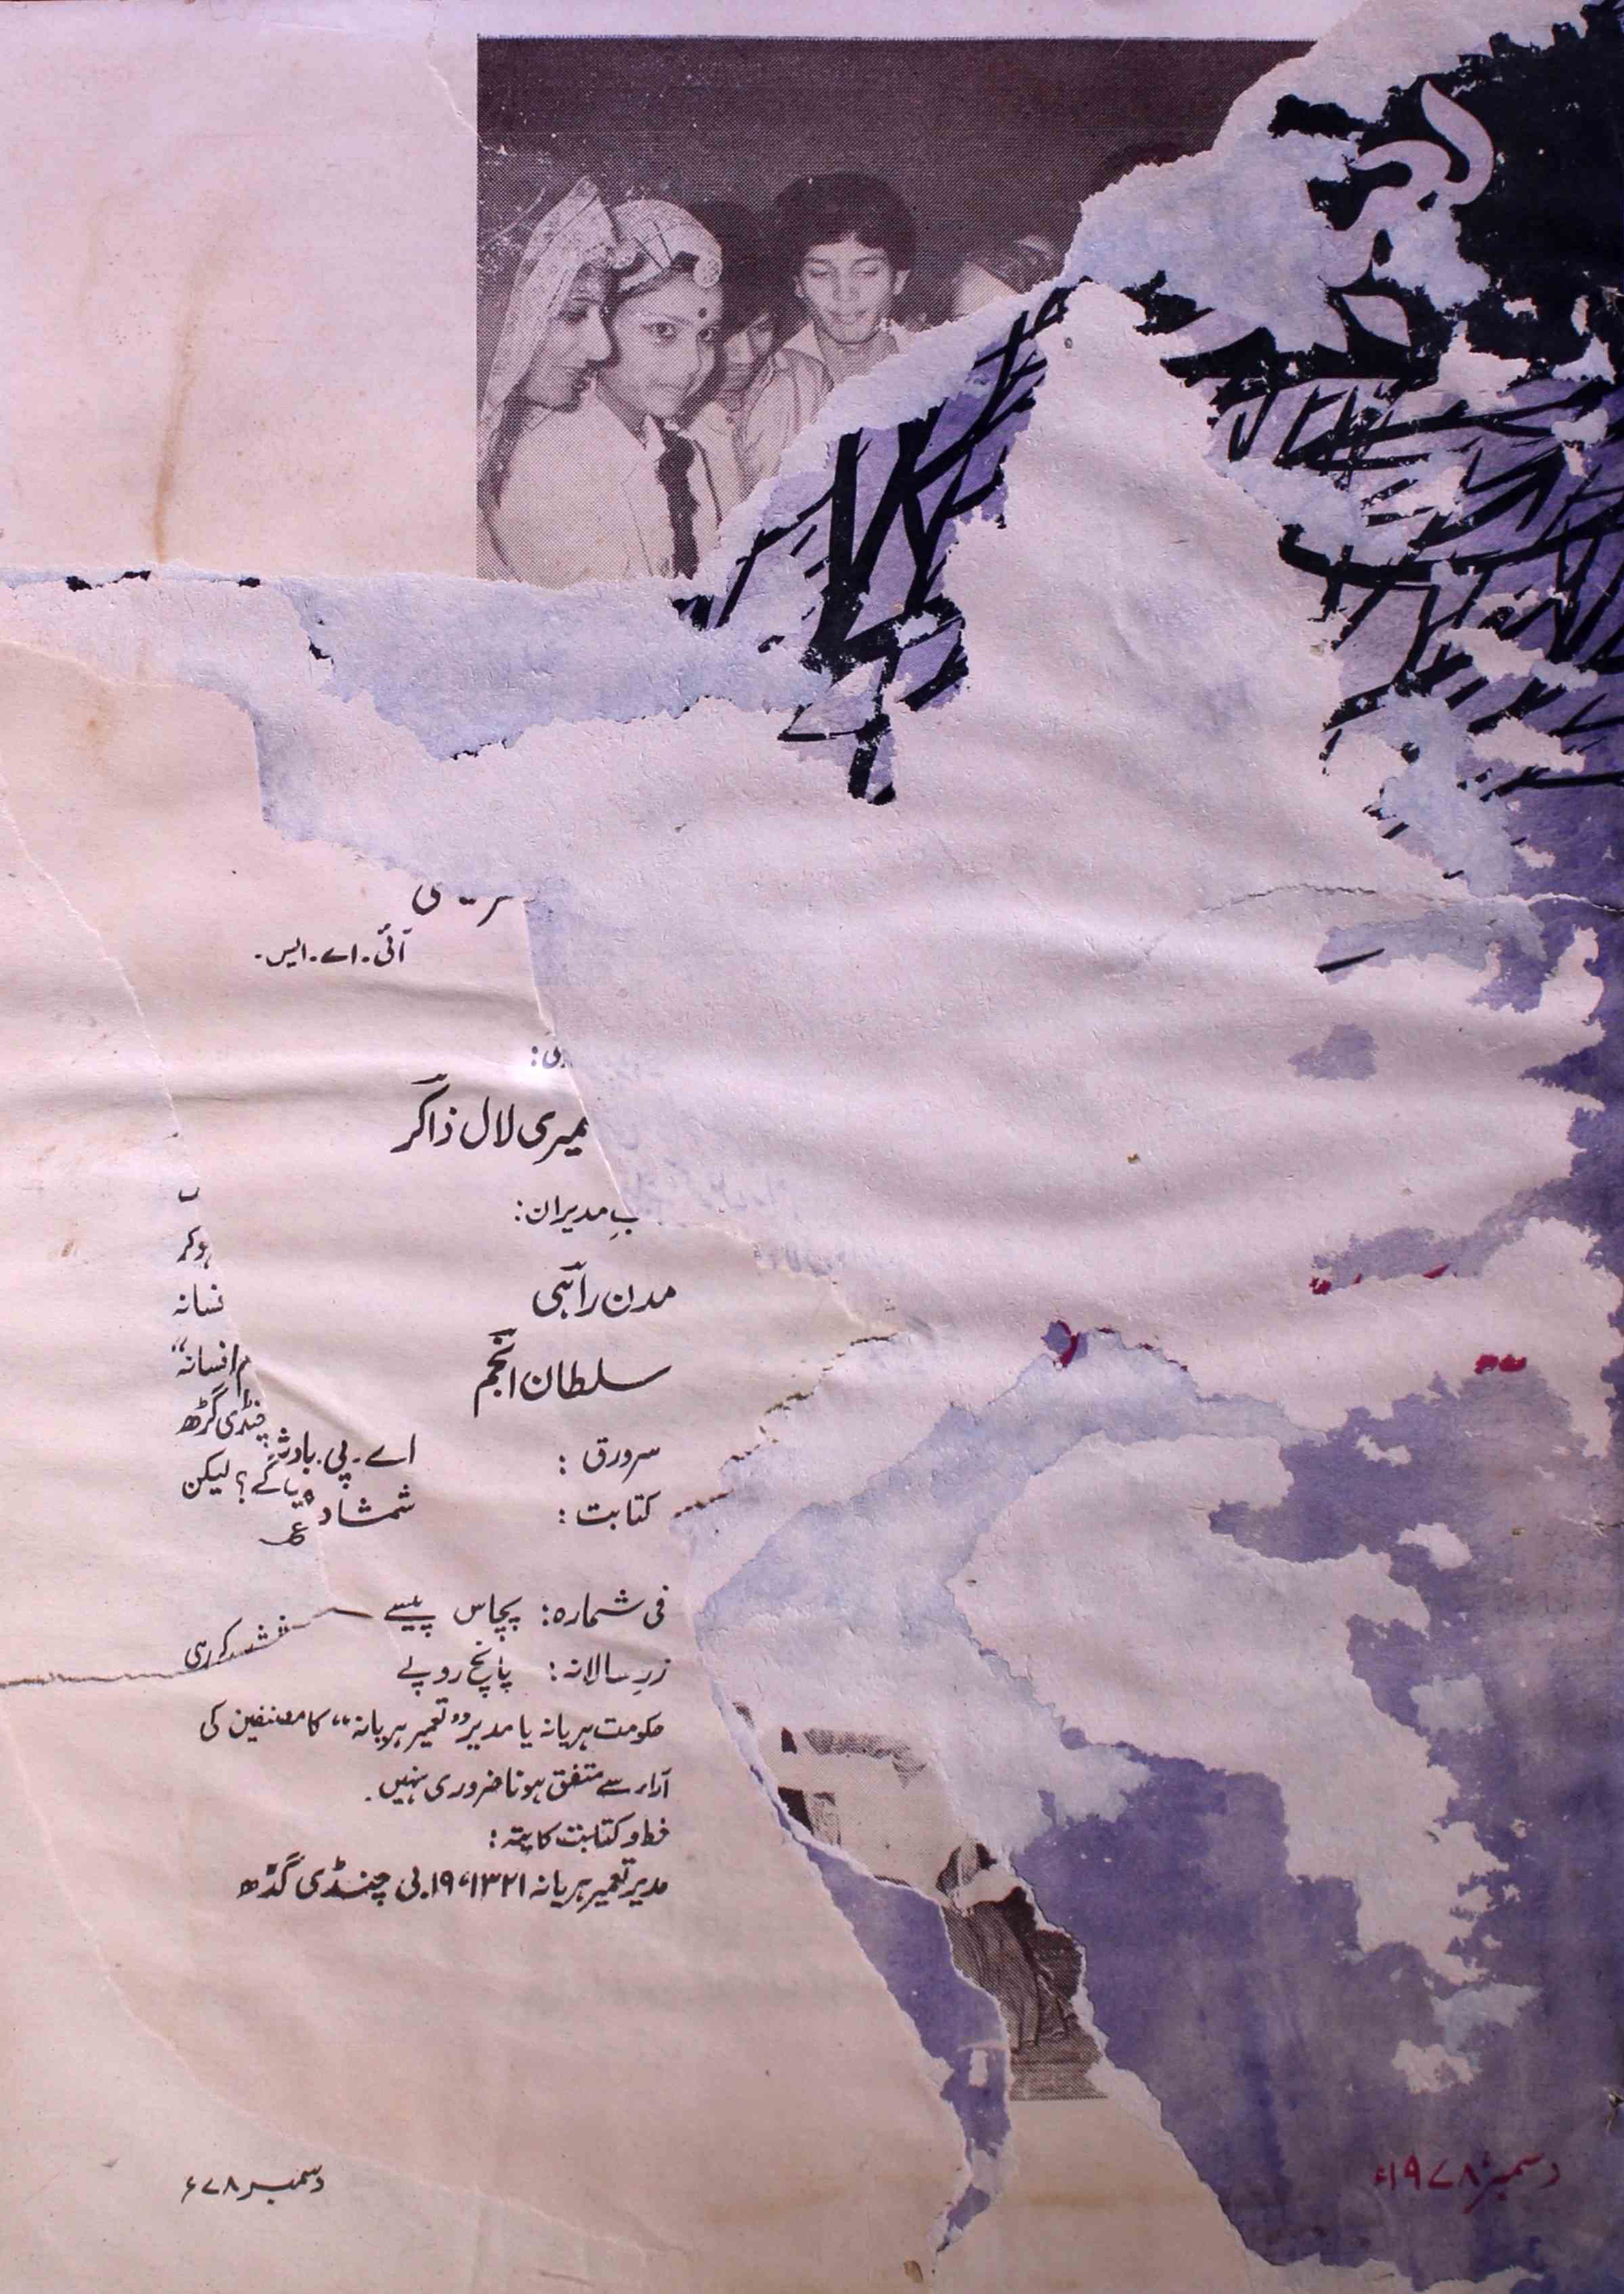 آئی۔اے۔ایس۔
میری لال ذاکر
مدیران:
مدن راہی
سلطان انجم
سرورق : اے۔پی۔
کتابت : شمشاد
فی شمارہ: پچاس پیسے
زرِسالانہ: پانچ روپے
حکومت ہریانہ یا مدیر ”تعمیر ہریانہ“ کا مصنفین کی
آراء سے متفق ہونا ضروری نہیں۔
خط و کتابت کا پتہ:
مدیر تعمیر ہریانہ ۱۳۲۱، ۱۹۔بی چنڈی گڈھ
ہوکر
افسانہ“
چنڈی گڑھ
گے؟ لیکن
کر رہی
دسمبر ۷۸ء
دسمبر ۱۹۷۸ء